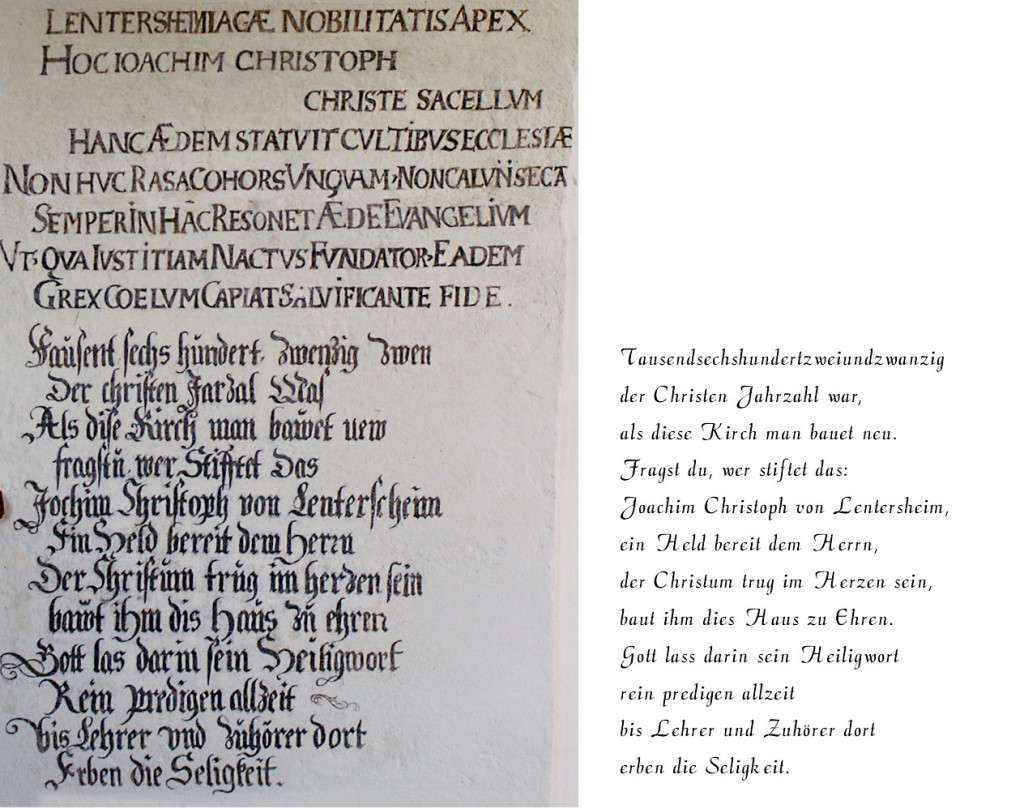 LENTERSHEIMIACÆ NOBILITATIS APEX
HOC IOACHIM CHRISTOPH
CHRISTE SACELLVM
HANC ÆDEM STATVIT CVLTIBVS ECCLESIÆ
NON HVC RASA COHORS VNQVAM, NON CALVIN SECTA
SEMPER IN HAC RESONET ÆDE EVANGELIVM
VT QVA IVSTITIAM NACTVS FVNDATOR EADEM
GREX COELVM CAPIAT SALVIFICANTE FIDE.
Tausent sechs hundert zwenzig zwey
Der christen Jarzal Was
Als dise Kirch man bawet new
fragstu wer Stifftet Das
Jochim Christoph von Lenterscheim
Ein Held bereit dem Herrn
Der Christum trug im herzen sein
bawt ihm dis Haus zu ehren
Gott las darin sein Heiligwort
Rein predigen allzeit
bis Lehrer vnd Zuhörer dort
Erben die Seligkeit.
Tausendsechshundertzweiundzwanzig
der Christen Jahrzahl war,
als diese Kirch man bauet neu.
Fragst du, wer stiftet das:
Joachim Christoph von Lentersheim,
ein Held bereit dem Herrn,
der Christum trug im Herzen sein,
baut ihm dies Haus zu Ehren.
Gott lass darin sein Heiligwort
rein predigen allzeit
bis Lehrer und Zuhörer dort
erben die Seligkeit.